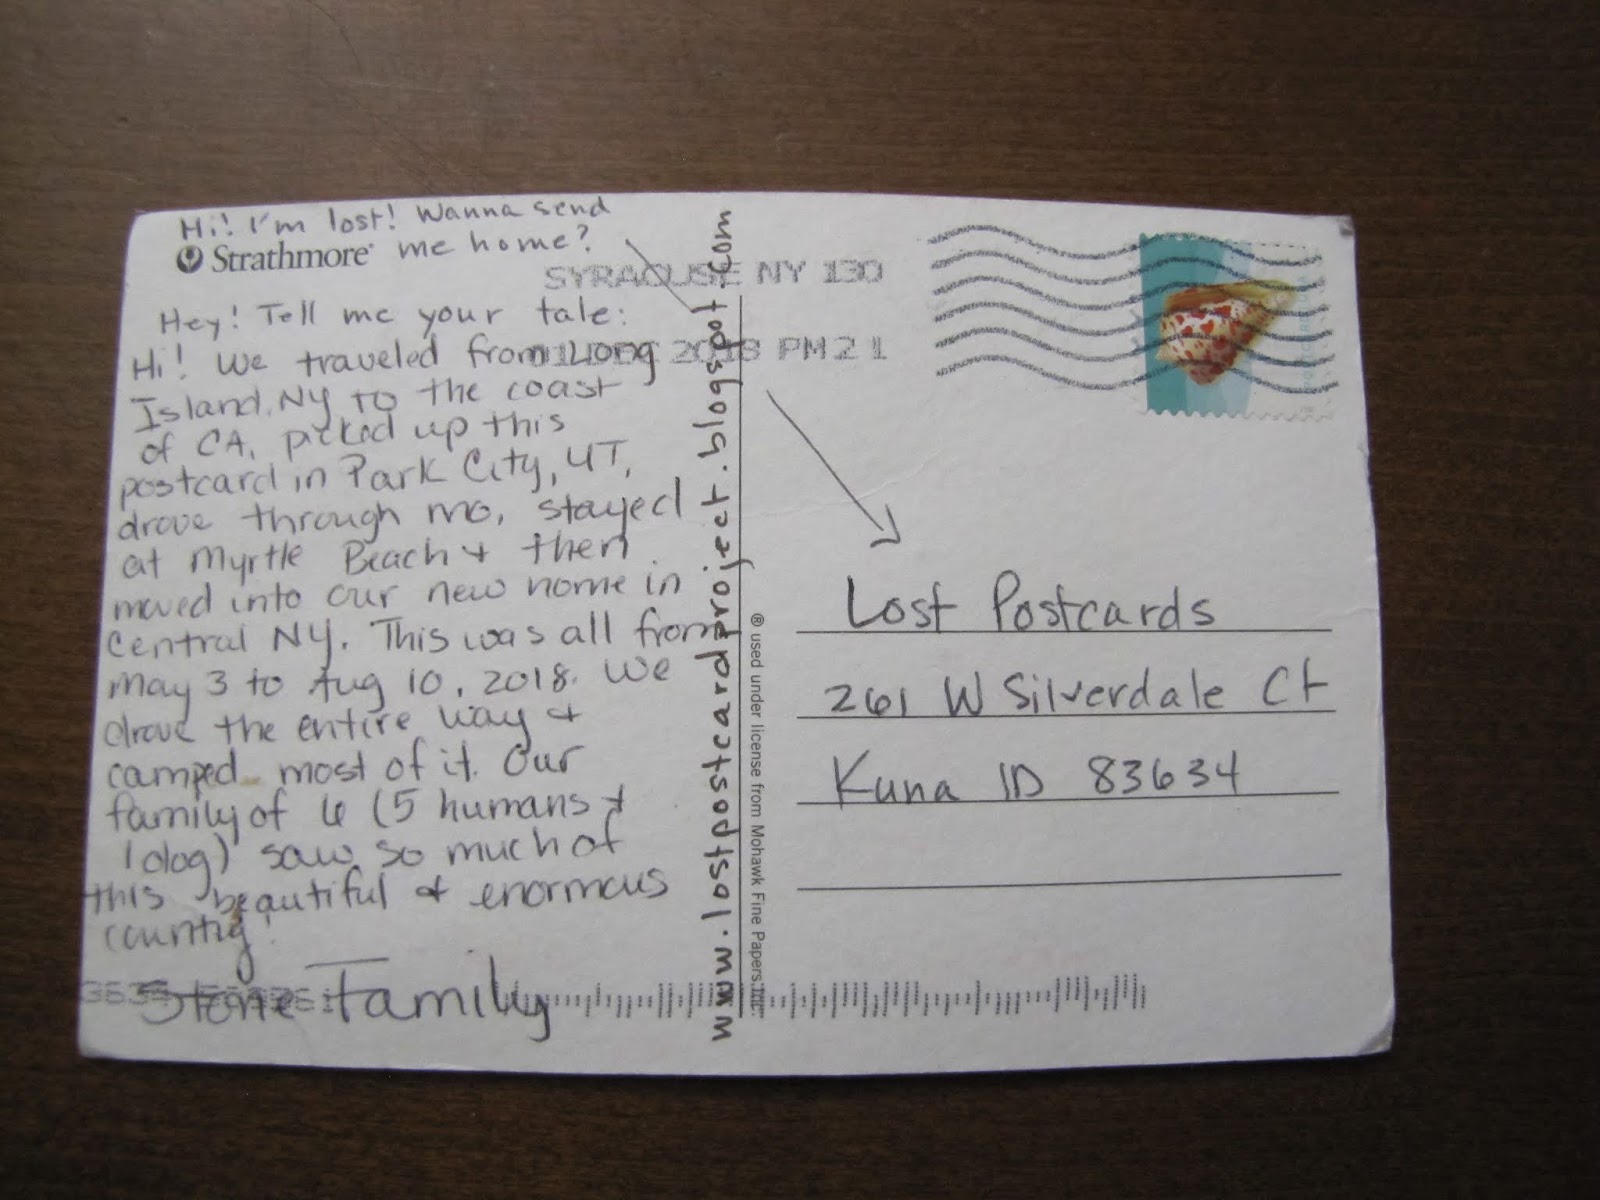 Hi! I'm lost! Wanna send
me home?
Strathmore
Hey! Tell me your tale:
Hi! We traveled from Long
Island, NY to the coast
of CA, picked up this
postcard in Park City, UT,
drove through MO, stayed
at Myrtle Beach & then
moved into our new home in
Central NY. This was all from
May 3 to Aug 10, 2018. We
drove the entire way &
camped most of it. Our
family of 6 (5 humans &
1 dog) saw so much of
this beautiful & enormous
country!
Stone Family
www.lostpostcardproject.blogspot.com
® used under license from Mohawk Fine Papers, Inc.
SYRACUSE NY 130
2018 PM 2 1
Lost Postcards
261 W Silverdale Ct
Kuna ID 83634